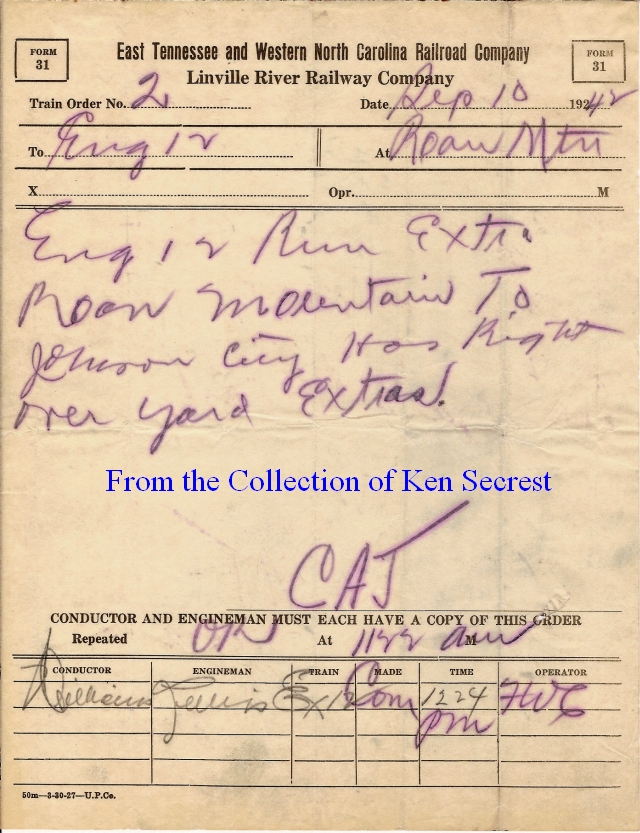 FORM 31
East Tennessee and Western North Carolina Railroad Company
FORM 31
Linville River Railway Company
Train Order No. 2 Date Sep 10 19242
To Eng 12 At Roan Mtn
X Opr. M
Eng 12 Run Extra
Roan Mountain To
Johnson City Has Right
over yard Extras.
From the Collection of Ken Secrest
CAJ
CONDUCTOR AND ENGINEMAN MUST EACH HAVE A COPY OF THIS ORDER
Repeated OK At 1122 am M
CONDUCTOR ENGINEMAN TRAIN MADE TIME OPERATOR
Williams Ex 12 Com 1224 pm
50m—3-30-27—U.P.Co.